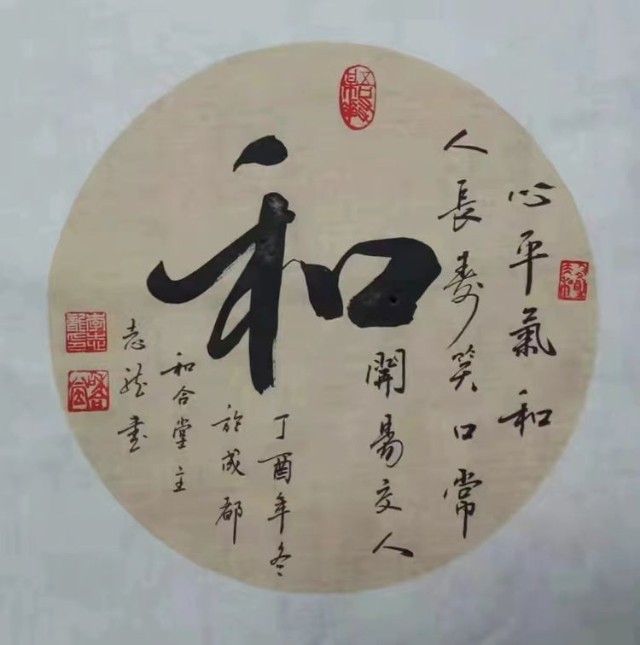 和
心平氣和
人長壽笑口常
開易交人
丁酉年冬
於成都
和合堂主
志龍書